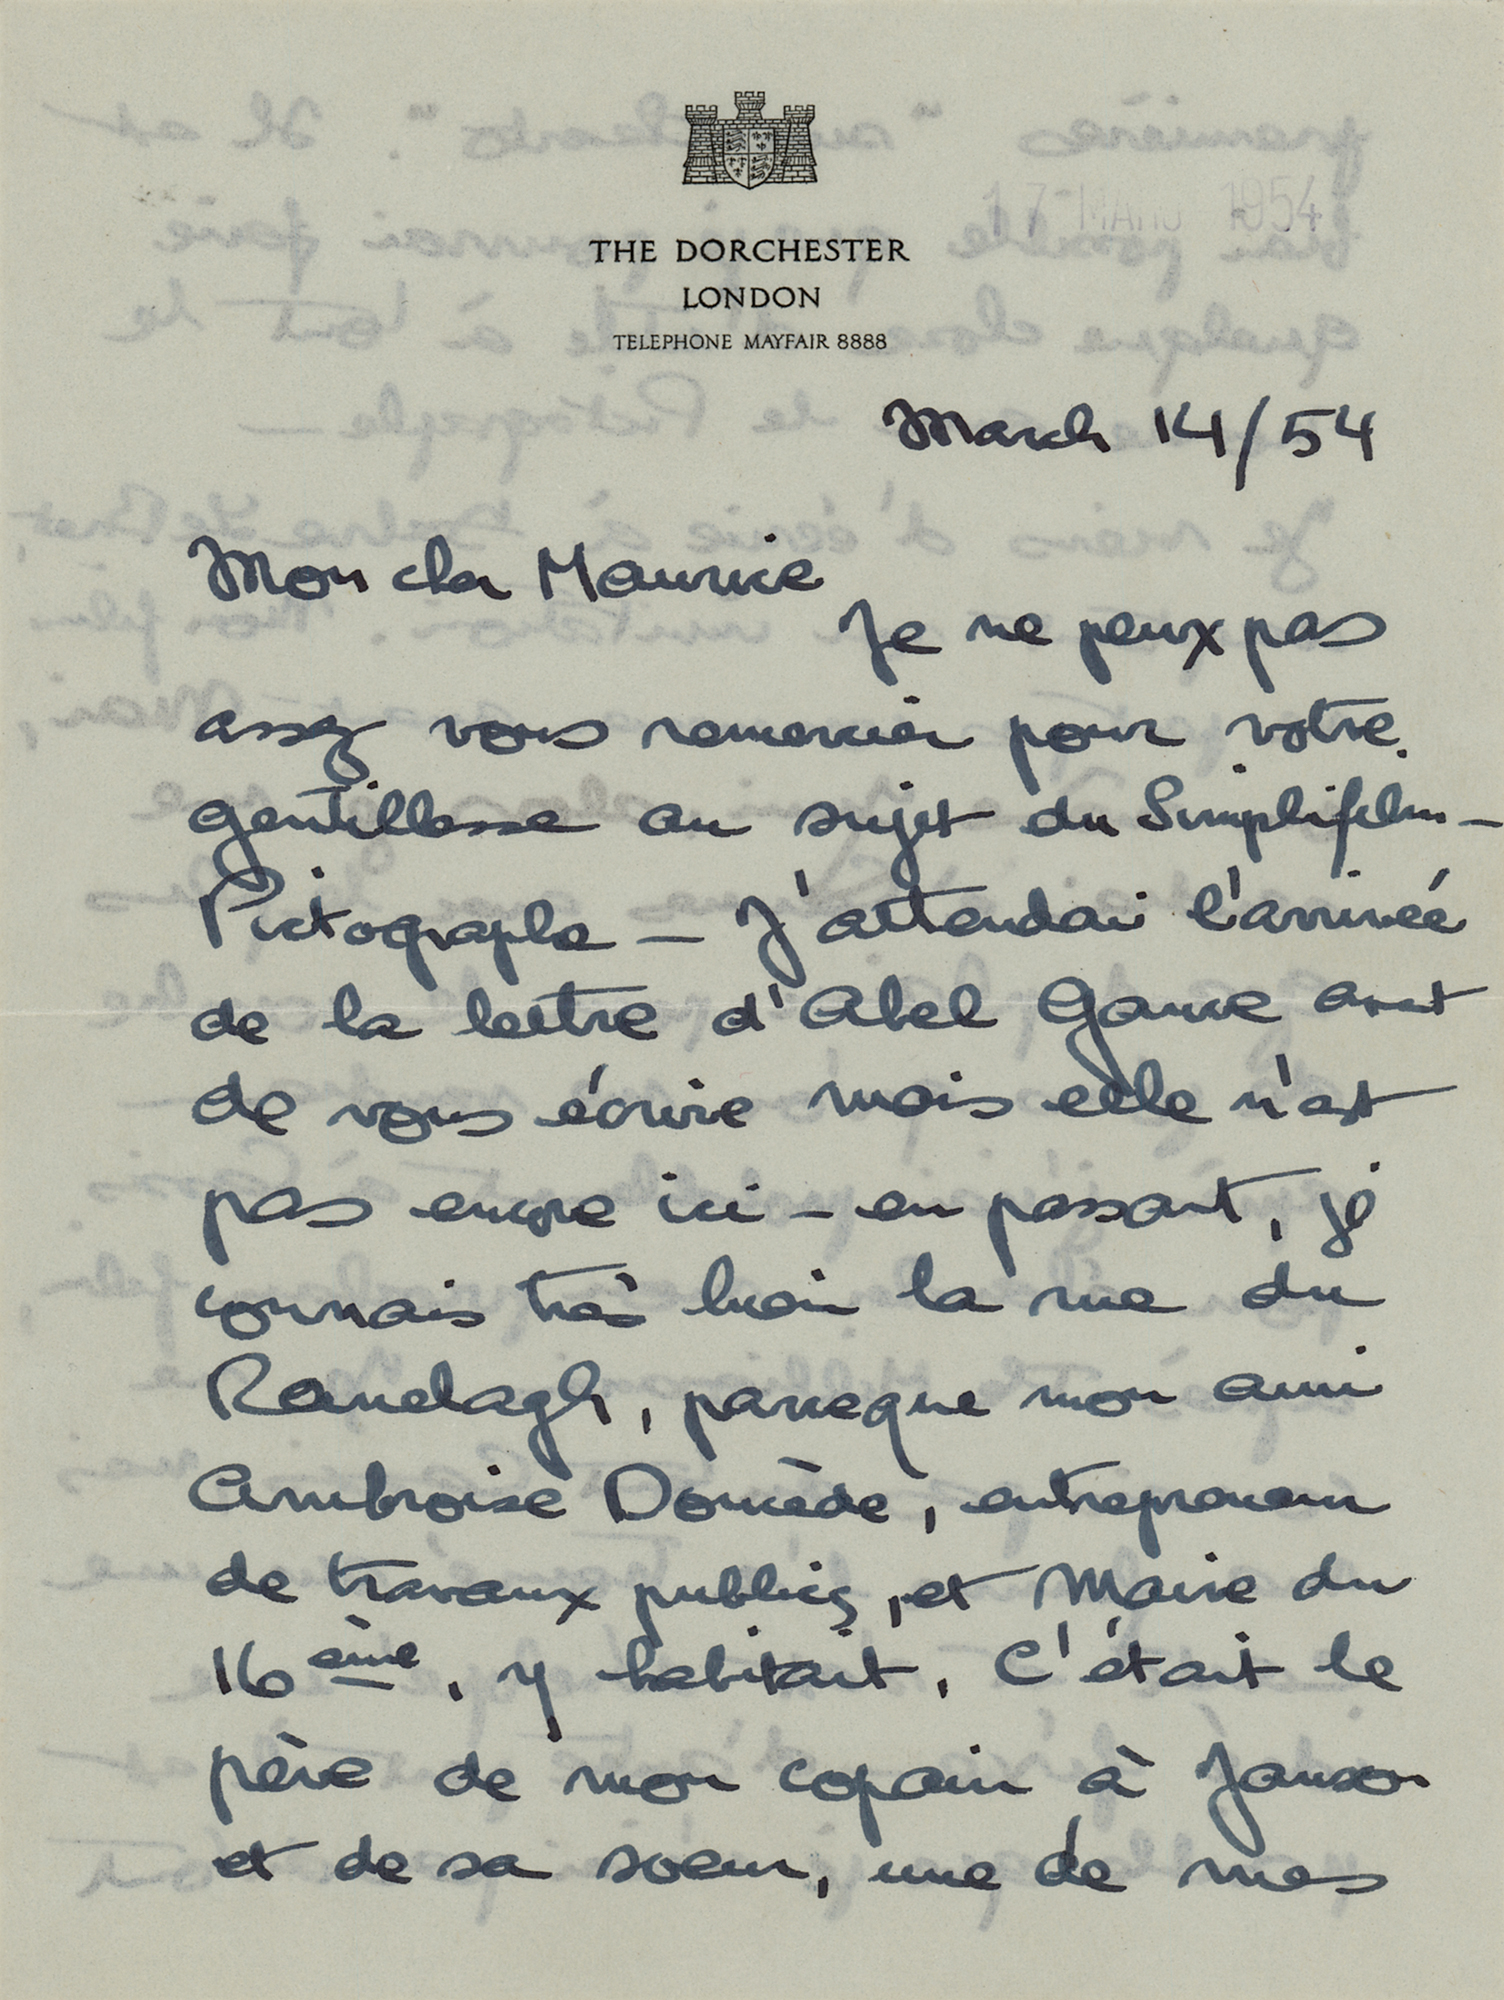 THE DORCHESTER
LONDON
TELEPHONE MAYFAIR 8888
17 MARS 1954
March 14/54
Mon cher Maurice
Je ne peux pas
assez vous remercier pour votre
gentillesse au sujet du Simplifilm -
Pictographe - J'attendai l'arrivée
de la lettre d'Abel Gance avant
de vous écrire mais elle n'est
pas encore ici - en passant, je
connais très bien la rue du
Ranelagh, parceque mon ami
Ambroise Domède, entrepreneur
de travaux publics, et Maire du
16ème, y habitait, C'était le
père de mon copain à Janson
et de sa soeur, une de mes